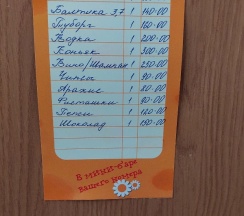 Балтика 3,7 1 140-00
Туборг 1 160-00
Водка 1 200-00
Коньяк 1 300-00
Вино/Шампан 1 250-00
Чипсы 1 90-00
Арахис 1 80-00
Фисташки 1 90-00
Пепси 1 120-00
Шоколад 1 150-00
В мини-баре
Вашего номера